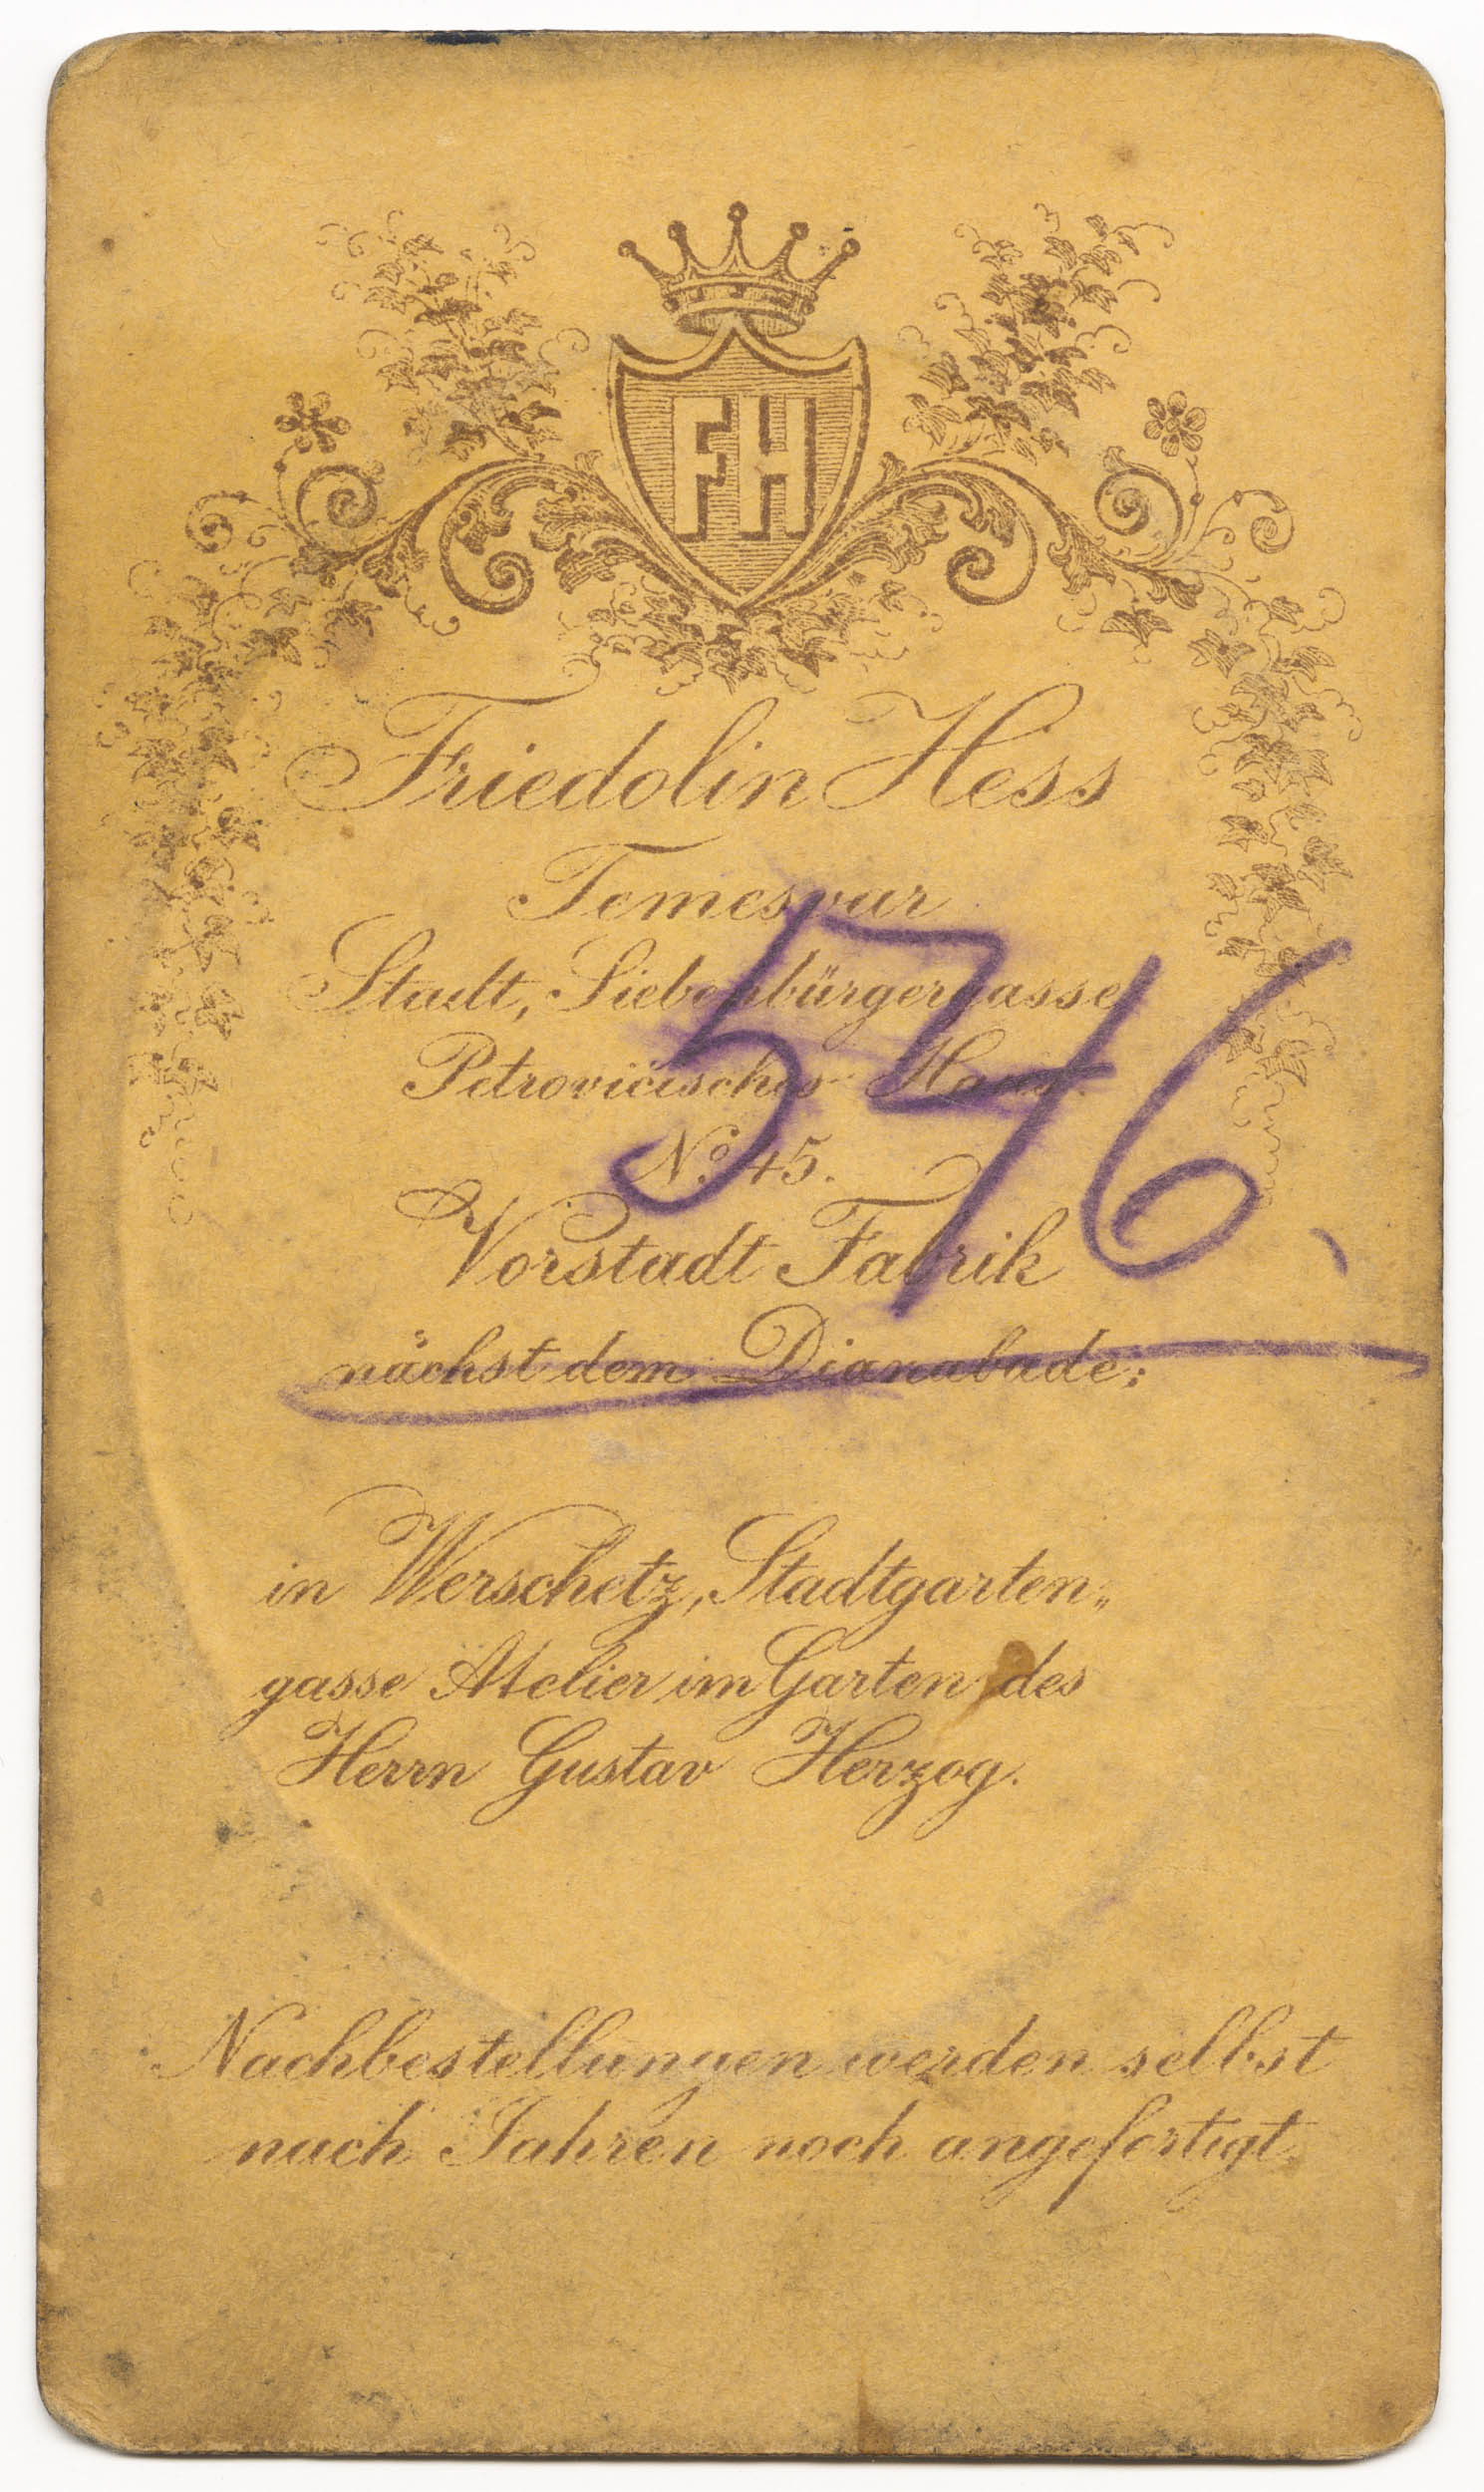 FH
Friedolin Hess
Temesvar
Stadt, Siebenbürgergasse
Petrovicisches Haus.
No. 45.
546.
Vorstadt Fabrik
nächst dem Dianabade;
in Werschetz, Stadtgarten„
gasse Atelier im Garten des
Herrn Gustav Herzog.
Nachbestellungen werden selbst
nach Jahren noch angefertigt.